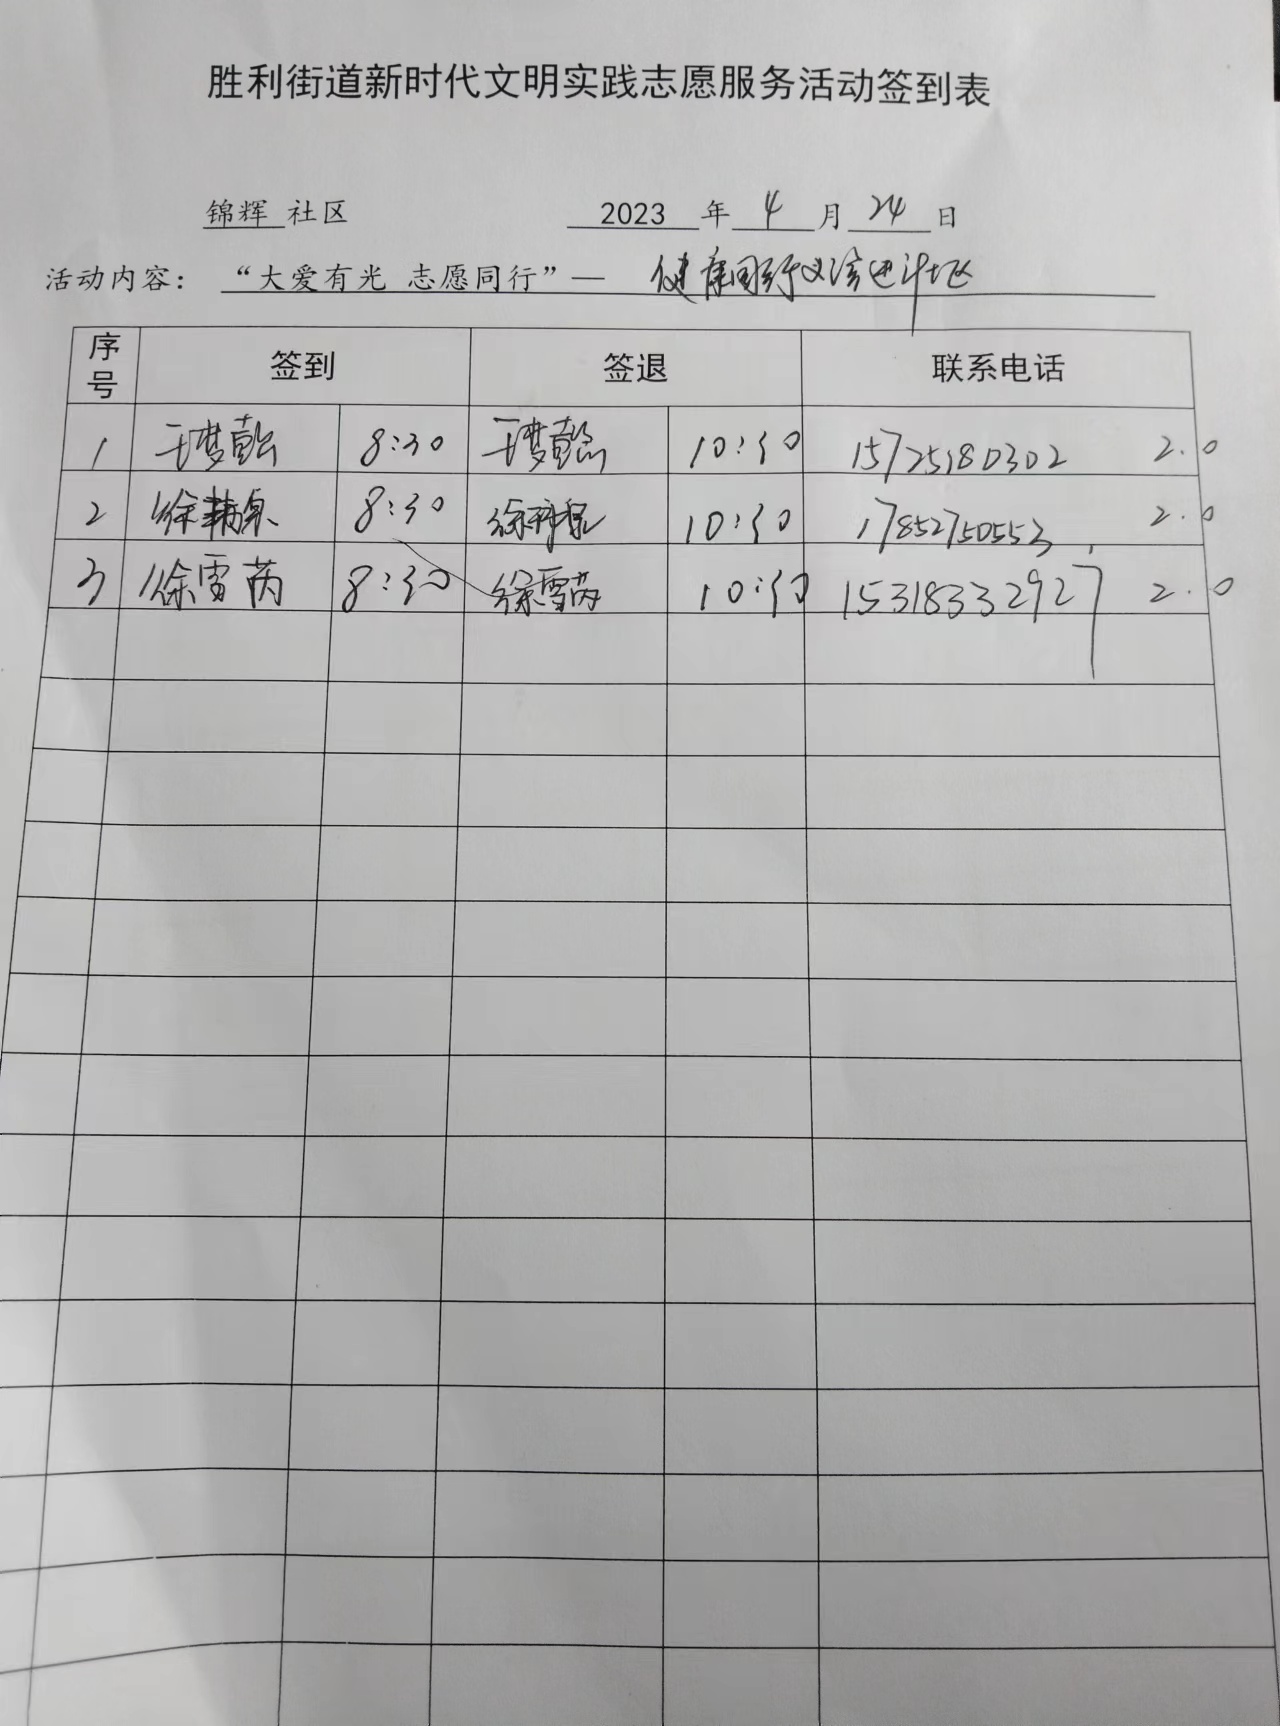 胜利街道新时代文明实践志愿服务活动签到表
锦辉 社区 2023 年 4 月 24 日
活动内容： “大爱有光 志愿同行”— 健康同行义诊进社区
序号 签到 签退 联系电话
1 8:30 10:30 15725180302 2.0
2 徐 8:30 徐 10:30 17852750553 2.0
3 徐雪芮 8:30 徐雪芮 10:30 15318332927 2.0